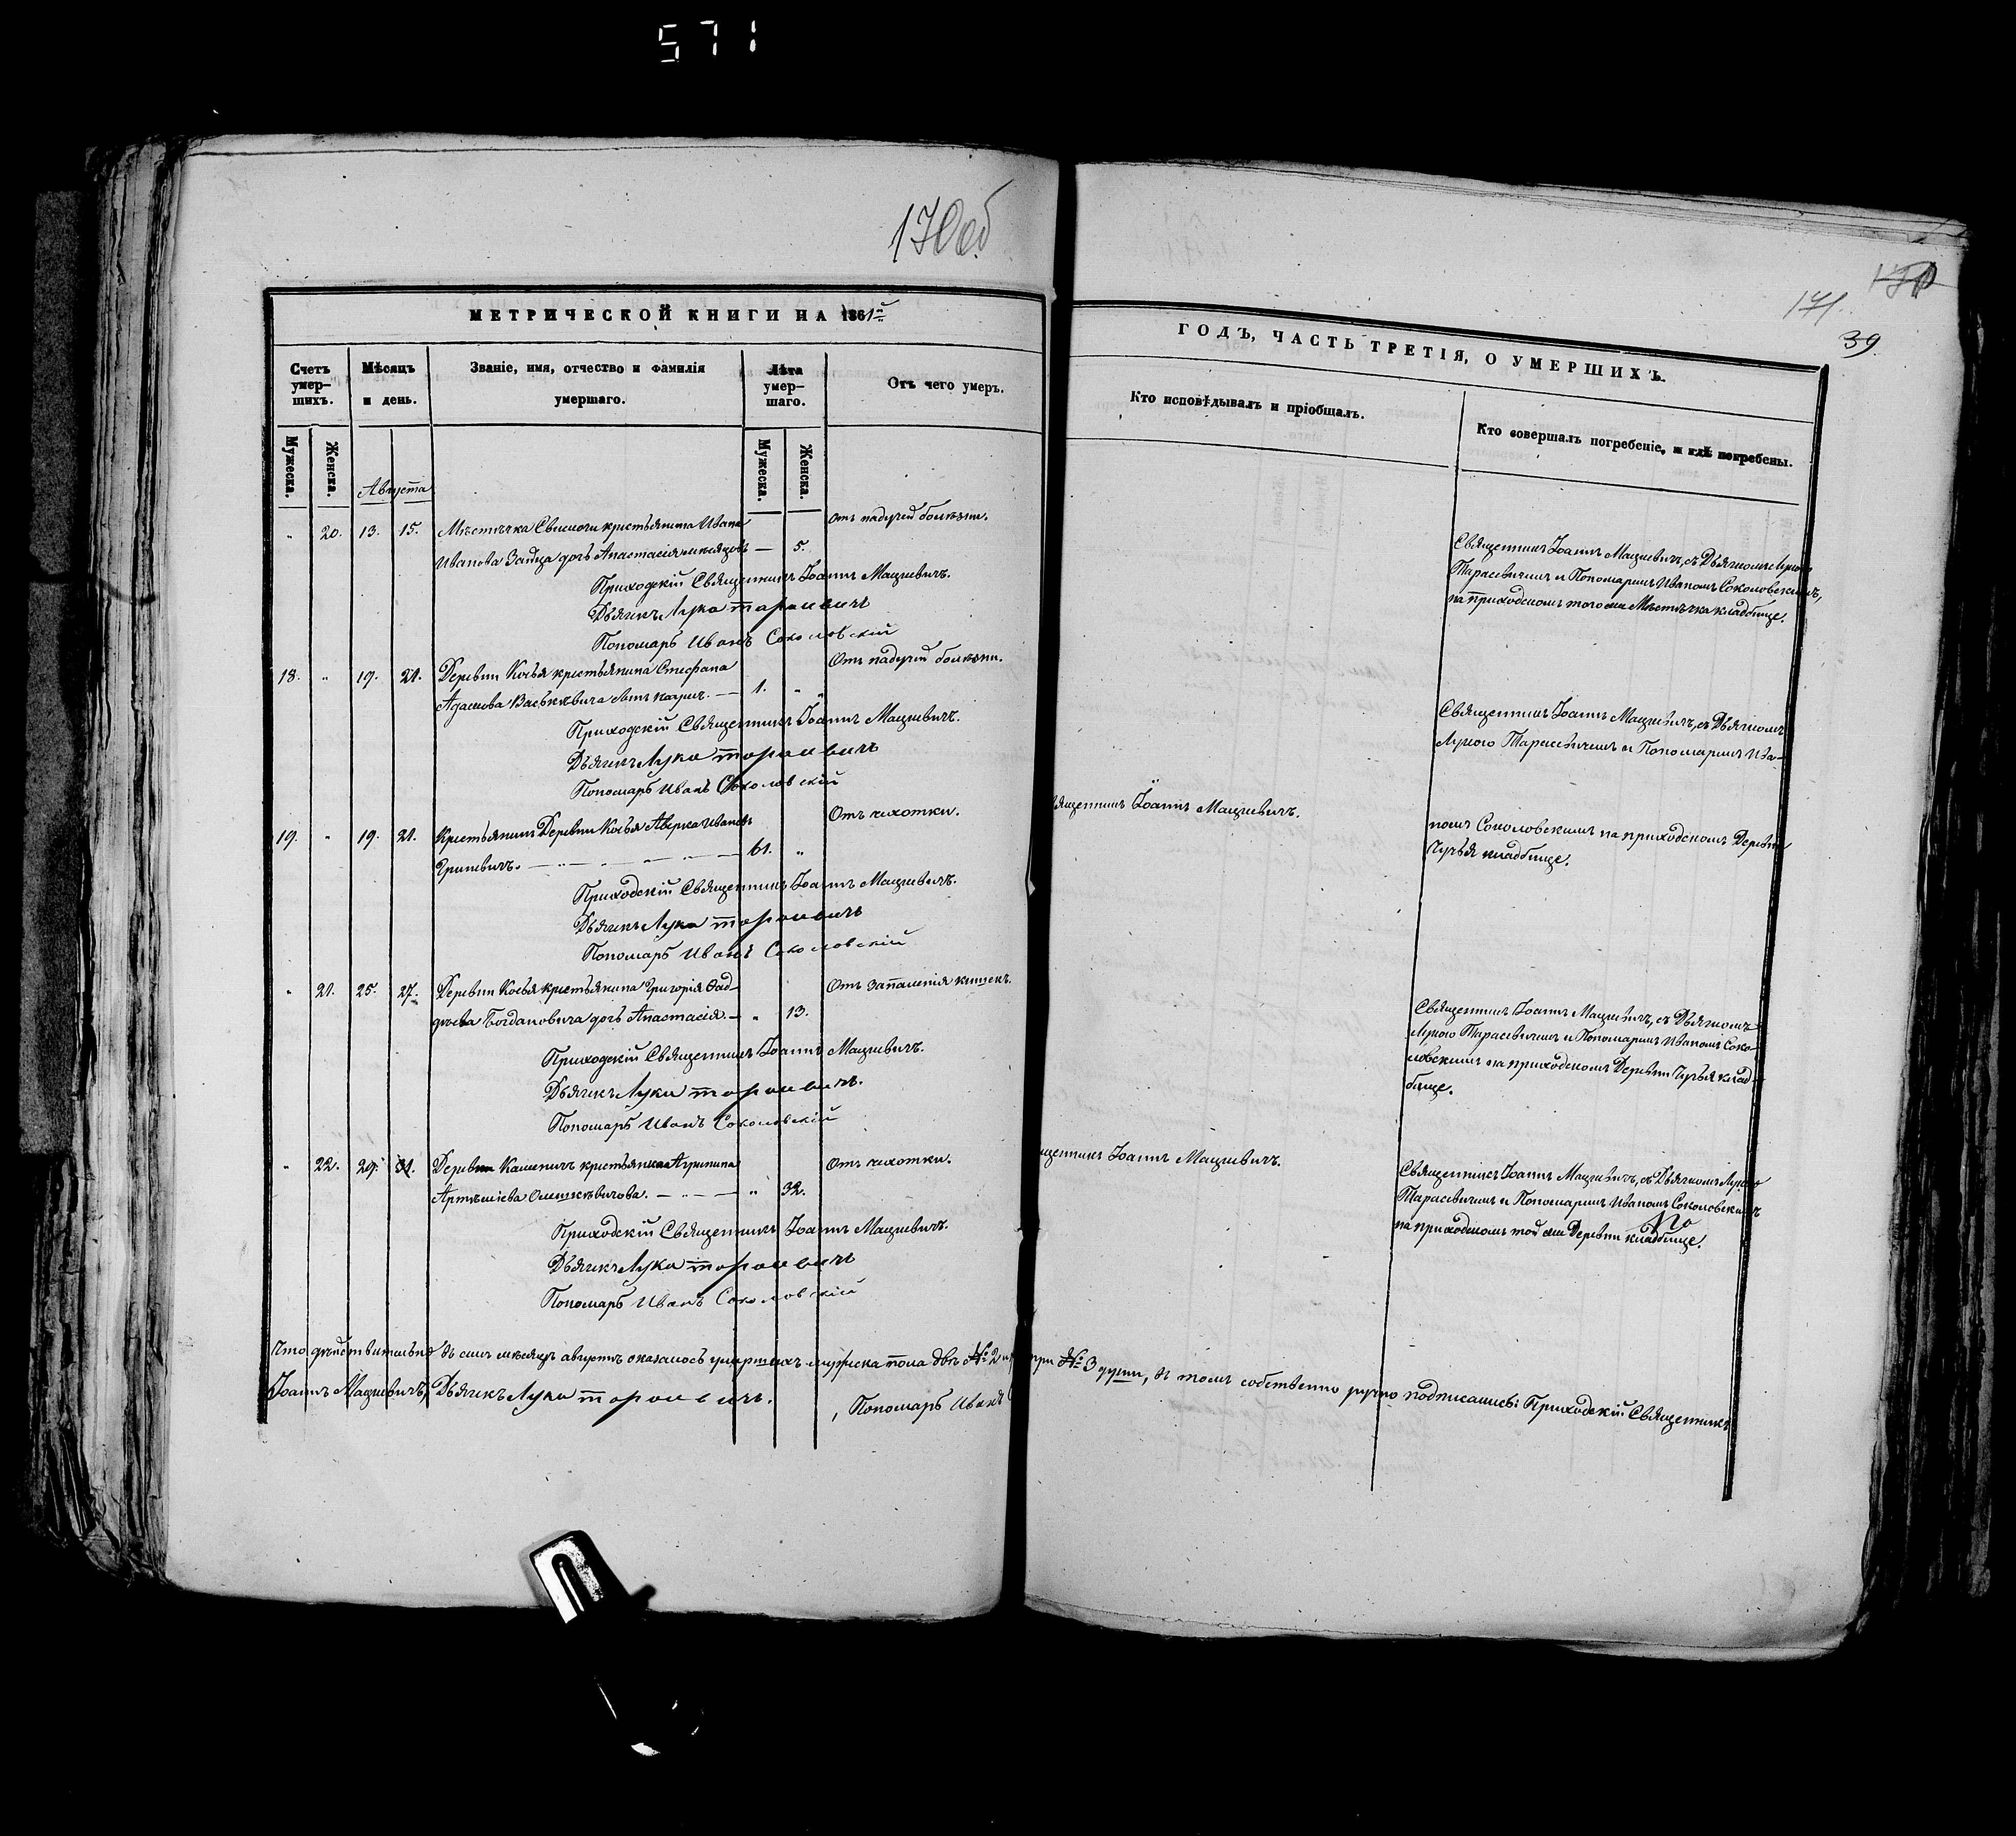 571
170об
170
171.
39.
МЕТРИЧЕСКОЙ КНИГИ НА 1861й
ГОДЪ, ЧАСТЬ ТРЕТІЯ, О УМЕРШИХЪ.
Счетъ умер-шихъ.
Мѣсяцъ и день.
Званіе, имя, отчество и фамилія умершаго.
Лѣта умер-шаго.
Отъ чего умеръ.
Кто исповѣдывалъ и пріобщалъ.
Кто совершалъ погребеніе, и гдѣ погребены.
Мужеска.
Женска.
Мужеска.
Женска.
Августа
" 20. 13. 15. Мѣстечка крестьянина Ивана
Отъ падучей болѣзни.
Иванова Зайца дочь Анастасія мѣсяцовъ — 5.
Приходскій Священникъ Іоаннъ Мацкевичъ.
Дьячекъ Лука Тарасевичъ
Пономарь Иванъ Соколовскій
Священникъ Іоаннъ Мацкевичъ, съ Дьячкомъ Лукою
Тарасевичемъ и Пономаремъ Иваномъ Соколовскимъ,
на приходскомъ того же Мѣстечка кладбище.
18. " 19. 21. Деревни крестьянина Стефана
Отъ падучей болѣзни.
Адамова — 1. "
Приходскій Священникъ Іоаннъ Мацкевичъ.
Дьячекъ Лука Тарасевичъ
Пономарь Иванъ Соколовскій
Священникъ Іоаннъ Мацкевичъ, съ Дьячкомъ
Лукою Тарасевичемъ и Пономаремъ Ива-
19. " 19. 21. Крестьянинъ Деревни Аверка Ивановъ
Отъ чахотки.
Гриневичъ. — " — " — " — 61. "
Приходскій Священникъ Іоаннъ Мацкевичъ.
Дьячекъ Лука Тарасевичъ
Пономарь Иванъ Соколовскій
Священникъ Іоаннъ Мацкевичъ.
номъ Соколовскимъ на приходскомъ Деревни
кладбище.
" 21. 25. 27. Деревни крестьянина Григорія Фад-
Отъ запаленія кишекъ.
дѣева Богдановича дочь Анастасія. — " 13.
Приходскій Священникъ Іоаннъ Мацкевичъ.
Дьячекъ Лука Тарасевичъ.
Пономарь Иванъ Соколовскій
Священникъ Іоаннъ Мацкевичъ, съ Дьячкомъ
Лукою Тарасевичемъ и Пономаремъ Иваномъ Соко-
ловскимъ на приходскомъ Деревни клад-
бище.
" 22. 29. 31. Деревни крестьянка Агрипина
Отъ чахотки.
— " — " 32.
Приходскій Священникъ Іоаннъ Мацкевичъ.
Дьячекъ Лука Тарасевичъ
Пономарь Иванъ Соколовскій
Священникъ Іоаннъ Мацкевичъ.
Священникъ Іоаннъ Мацкевичъ, съ Дьячкомъ Лукою
Тарасевичемъ и Пономаремъ Иваномъ Соколовскимъ
на приходскомъ той же Деревни кладбище.
Что дѣйствительно въ семъ мѣсяцѣ августѣ оказалось умершихъ мужеска пола двѣ № 2 три № 3 души, въ томъ собственно ручно подписались: Приходскій Священникъ
Іоаннъ Мацкевичъ, Дьячекъ Лука Тарасевичъ. , Пономарь Иванъ